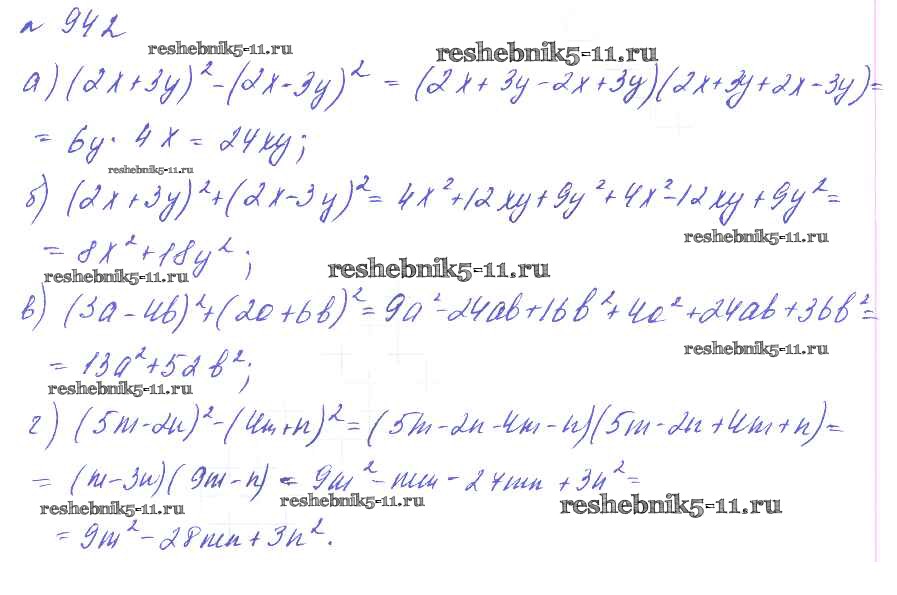 № 942
reshebnik5-11.ru reshebnik5-11.ru
а) (2x+3y)²-(2x-3y)² = (2x+3y-2x+3y)(2x+3y+2x-3y)=
= 6y·4x = 24xy;
reshebnik5-11.ru
б) (2x+3y)²+(2x-3y)²= 4x²+12xy+9y²+4x²-12xy+9y²=
reshebnik5-11.ru
= 8x²+18y²;
reshebnik5-11.ru reshebnik5-11.ru
в) (3a-4b)²+(2a+6b)²=9a²-24ab+16b²+4a²+24ab+36b²=
reshebnik5-11.ru
= 13a²+52b²;
reshebnik5-11.ru
г) (5m-2n)²-(4m+n)²=(5m-2n-4m-n)(5m-2n+4m+n)=
= (m-3n)(9m-n) = 9m²-mn-27mn+3n²=
reshebnik5-11.ru reshebnik5-11.ru reshebnik5-11.ru
= 9m²-28mn+3n².